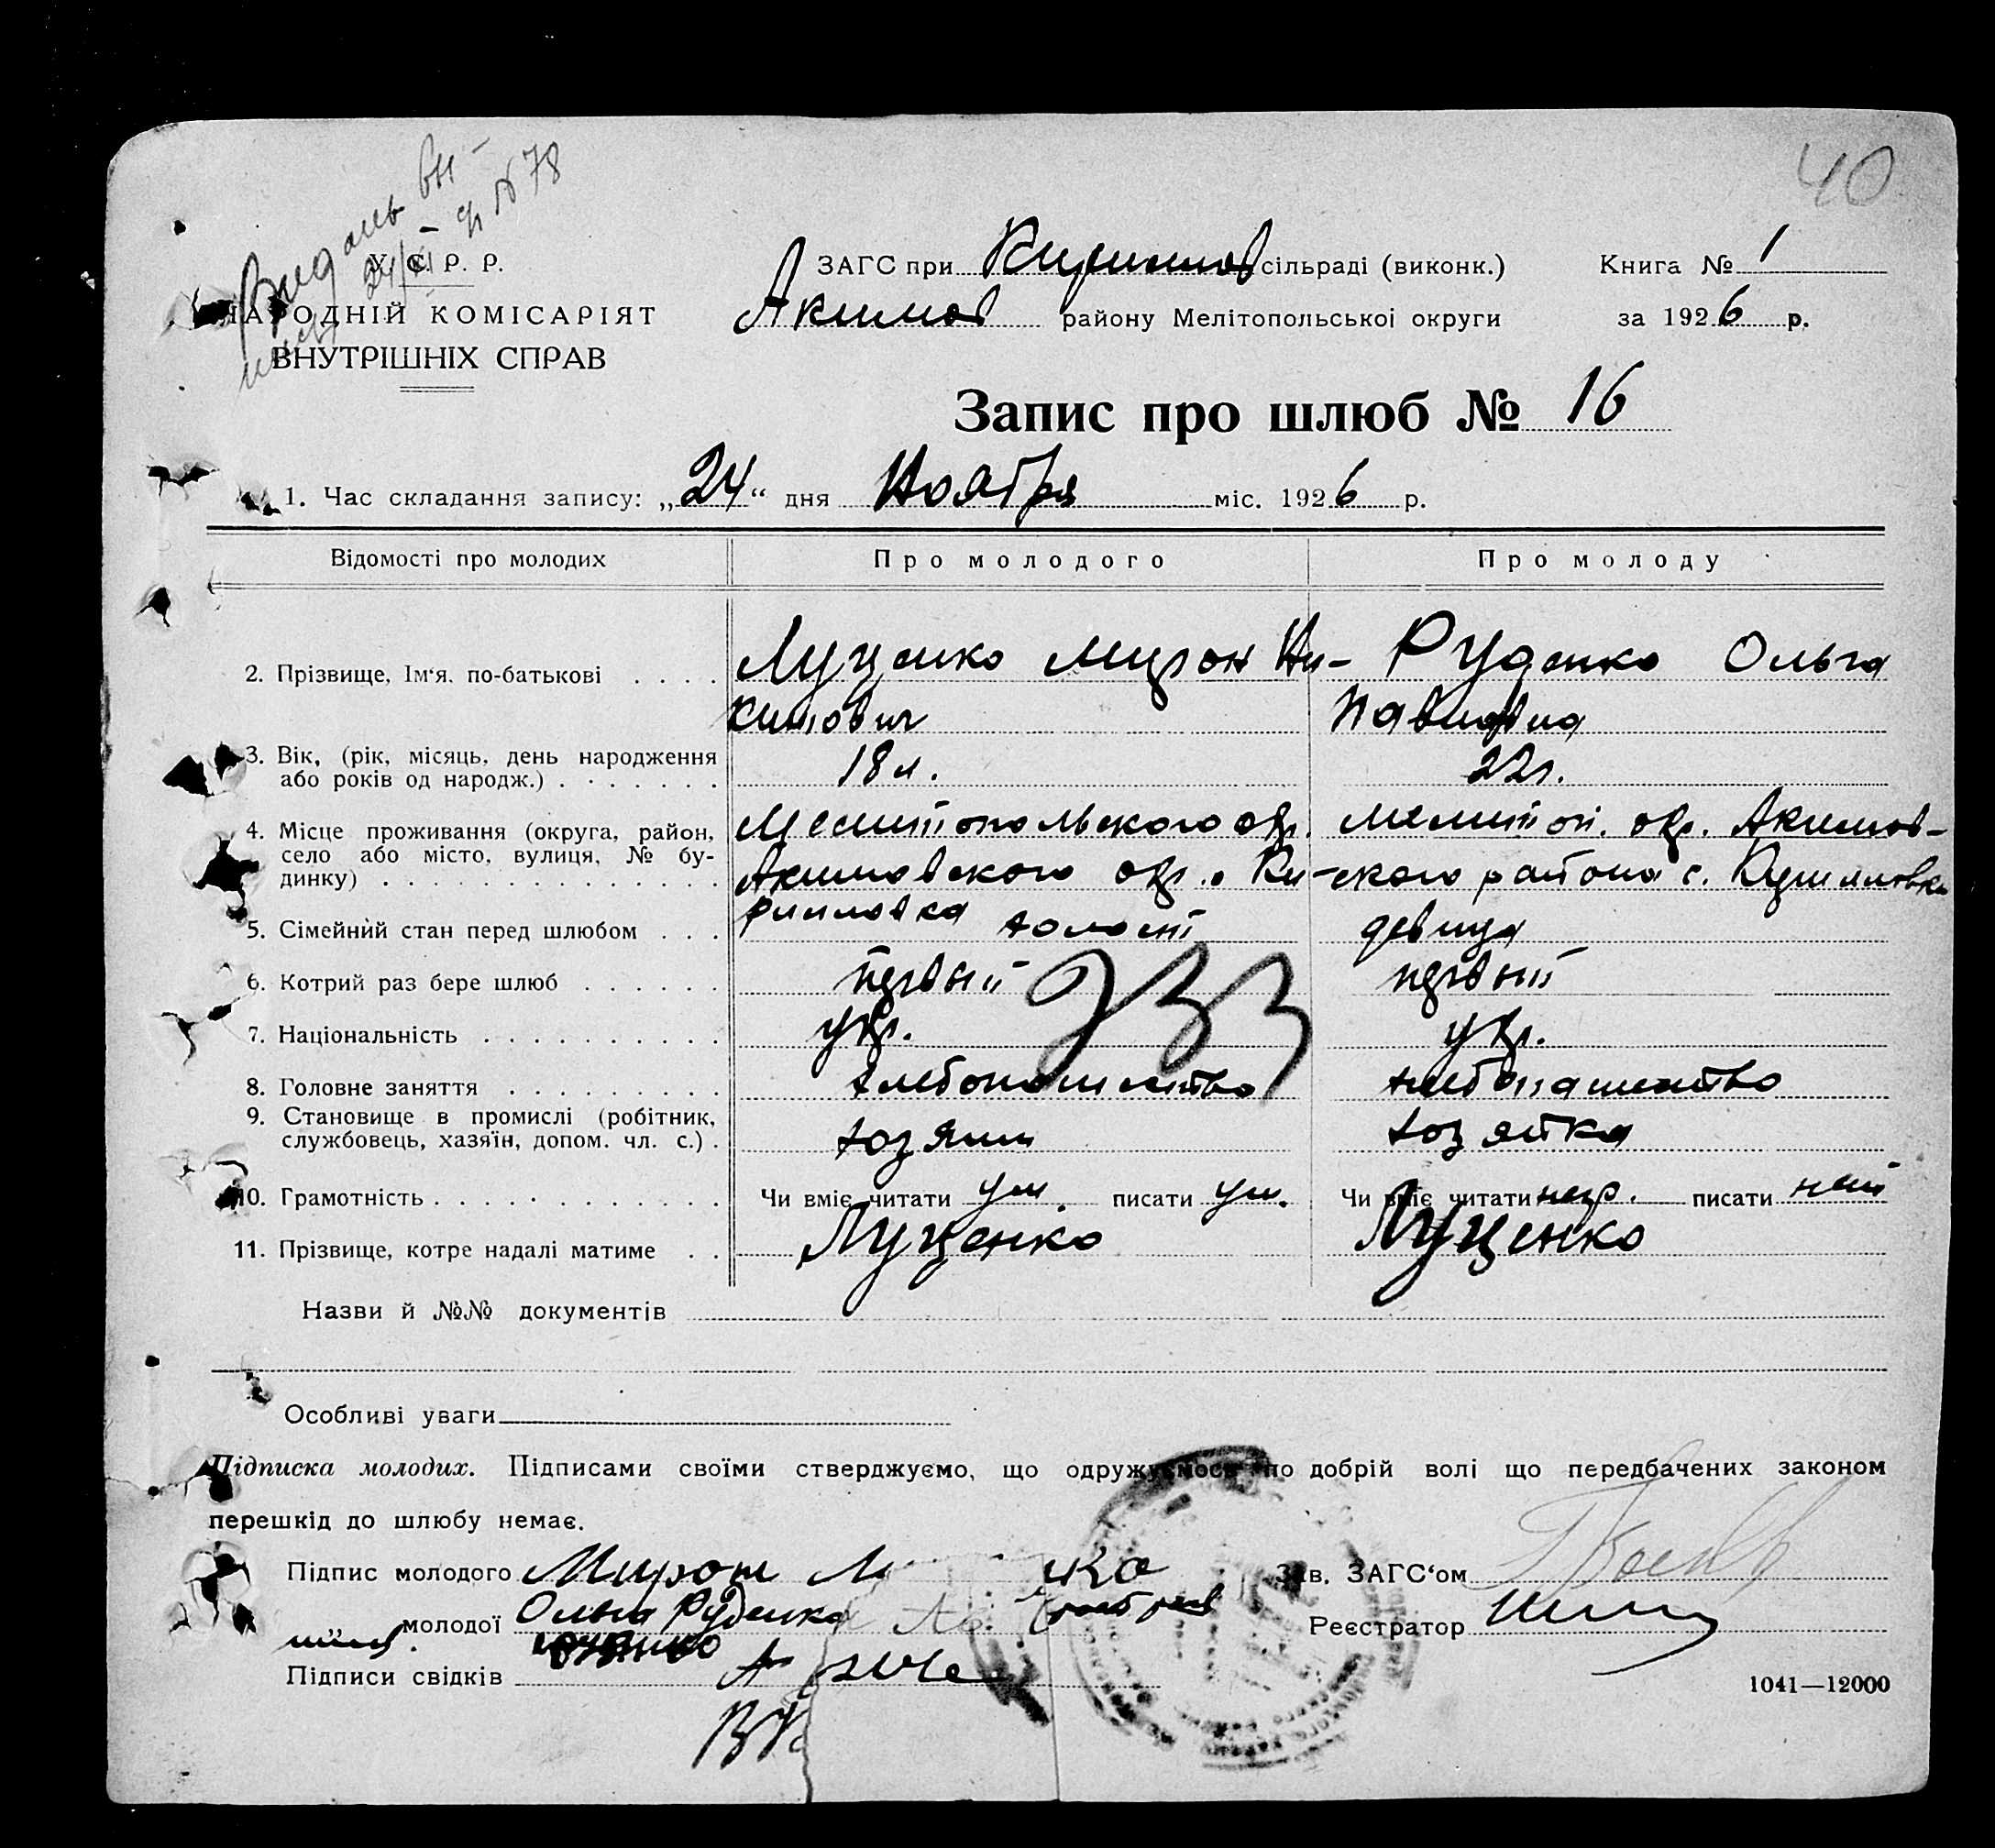 40
№ 78
У. С. Р. Р.
НАРОДНІЙ КОМІСАРІЯТ
ВНУТРІШНІХ СПРАВ
ЗАГС при Кирилов сільраді (виконк.) Книга № 1
Акимов району Мелітопольської округи за 1926 р.
Запис про шлюб № 16
1. Час складання запису: „24“ дня Ноября міс. 1926 р.
Відомості про молодих Про молодого Про молоду
2. Прізвище, Ім‘я, по-батькові . . . . Луценко Мирон Ни- Руденко Ольга
китович Павловна
3. Вік, (рік, місяць, день народження
або років од народж.) . . . . . . . 18 л. 22 г.
4. Місце проживання (округа, район, Мелитопольского окр. Мелитоп. окр. Акимов-
село або місто, вулиця, № бу-
динку) . . . . . . . . . . . . . . Акимовского окр. Ки- ского района с. Кириловки
рилловка
5. Сімейний стан перед шлюбом . . . холост девица
6. Котрий раз бере шлюб . . . . . . первый первый
233
7. Національність . . . . . . . . . . укр. укр.
8. Головне заняття . . . . . . . . . хлебопашество хлебопашество
9. Становище в промислі (робітник,
службовець, хазяїн, допом. чл. с.) . хозяин хозяйка
10. Грамотність . . . . . . . . . . . Чи вміє читати ум. писати ум. Чи вміє читати негр. писати нет
11. Прізвище, котре надалі матиме . . Луценко Луценко
Назви й №№ документів
Особливі уваги
Підписка молодих. Підписами своїми стверджуємо, що одружуємося по добрій волі що передбачених законом
перешкід до шлюбу немає.
Підпис молодого Мирон Зав. ЗАГС‘ом
„ молодої Ольга Руденко Реєстратор
Підписи свідків
1041—12000